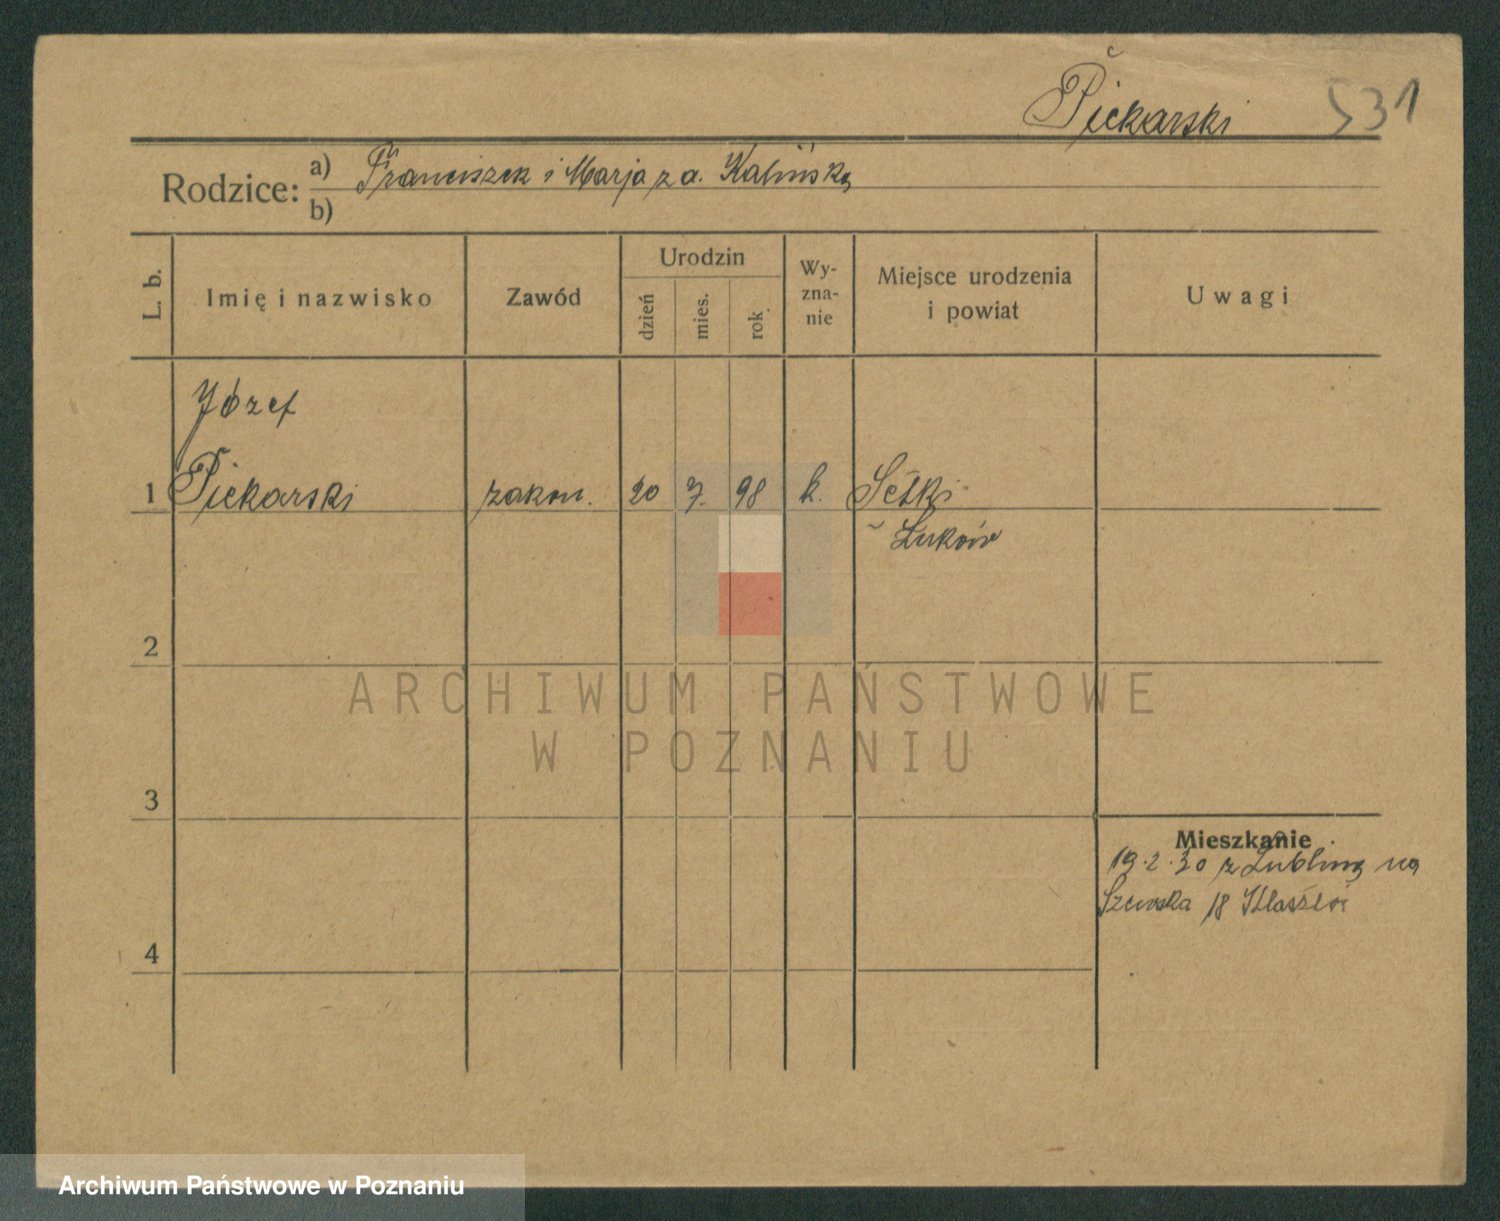 Piekarski 531
Rodzice: a) Franciszek i Marja z d. Kalińska
b)
L. b.
Imię i nazwisko
Zawód
Urodzin
dzień
mies.
rok
Wy-
zna-
nie
Miejsce urodzenia
i powiat
Uwagi
Józef
1 Piekarski zakon. 20 7. 98 k.
Łuków
2
3
4
Mieszkanie
19.2.30 z Lublina na
Szewska 18 Klasztor
ARCHIWUM PAŃSTWOWE
W POZNANIU
Archiwum Państwowe w Poznaniu